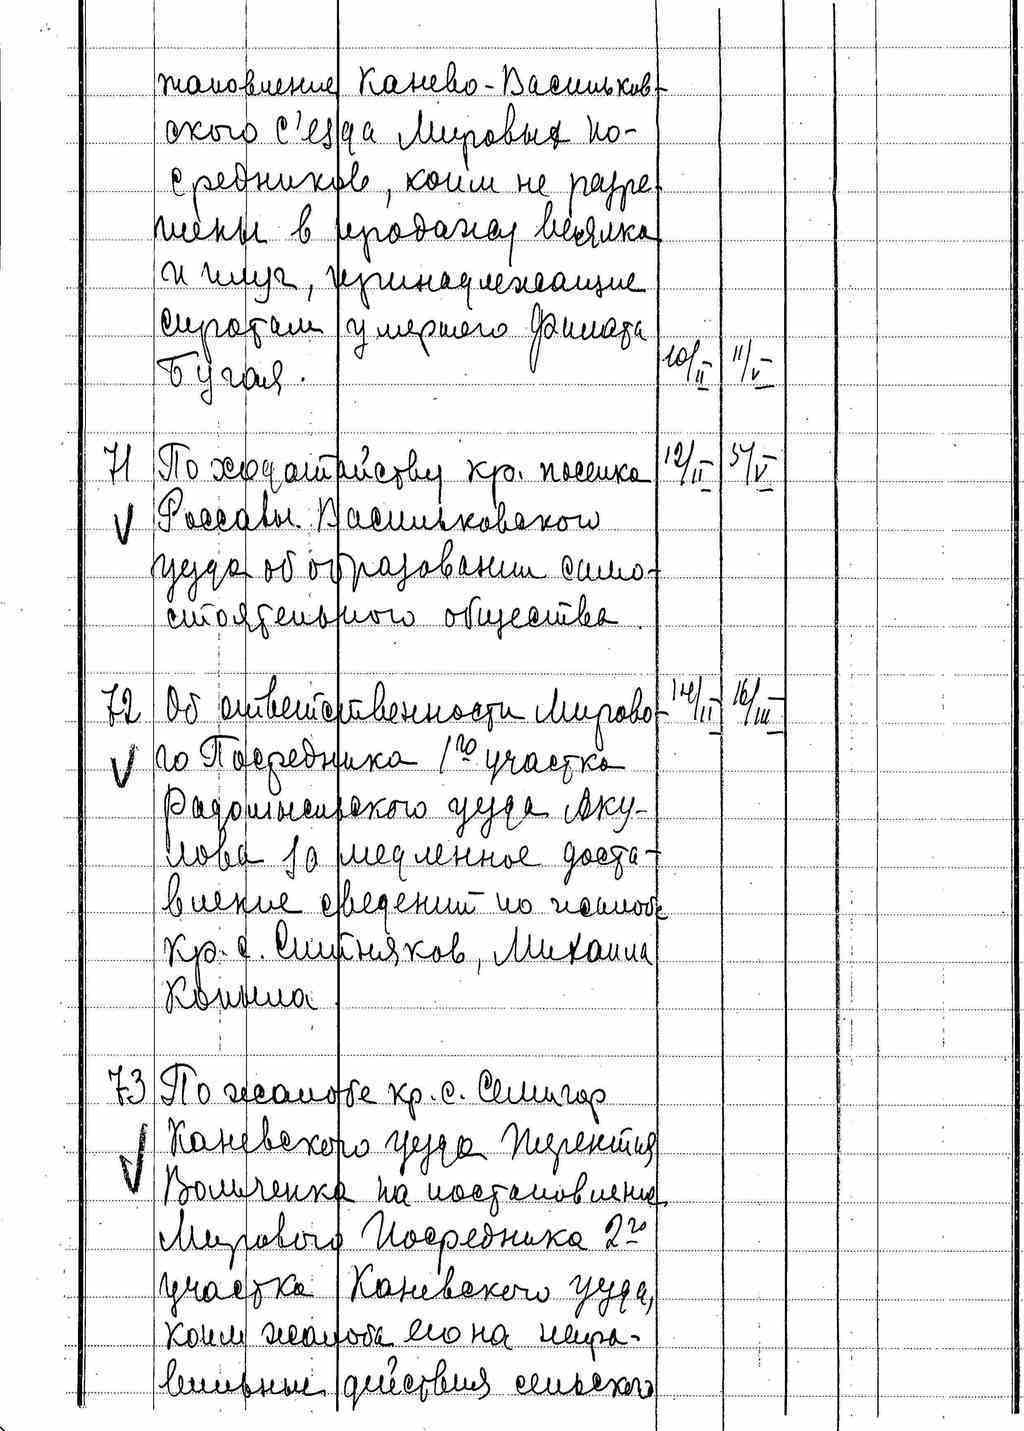 тановление Канево-Васильков-
ского с'езда Мировых По-
средников, коим не разре-
шены в продажу веялка
и плуг, принадлежащие
сиротам умершего Филата
Бугая. 10/II 11/V
71 По ходатайству кр. поселка 12/II 5/V
V Россавы Васильковского
уезда об образовании само-
стоятельного общества.
72 Об ответственности Мирово- 14/II 16/III
V го Посредника 1го участка
Радомысльского уезда Аку-
лова за медленное доста-
вление сведений по жалобе
кр. с. Ситняков, Михаила
73 По жалобе кр. с. Семигор
V Каневского уезда Терентия
на постановление
Мирового Посредника 2го
участка Каневского уезда,
коим жалоба его на непра-
вильные действия сельского